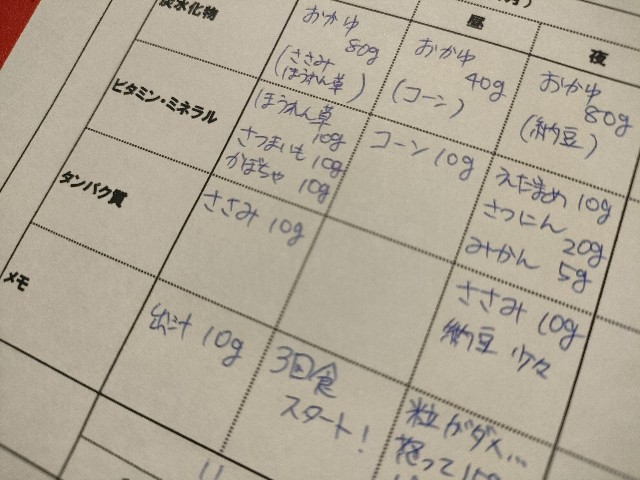 昼
夜
炭水化物
おかゆ
80g
(ささみ
ほうれん草)
おかゆ
40g
(コーン)
おかゆ
80g
(納豆)
ビタミン・ミネラル
ほうれん草
10g
さつまいも 10g
かぼちゃ 10g
コーン 10g
えだまめ 10g
さつにん
20g
みかん 5g
タンパク質
ささみ 10g
ささみ 10g
納豆 少々
メモ
出汁 10g
3回食
スタート!
粒がダメ…
怒って